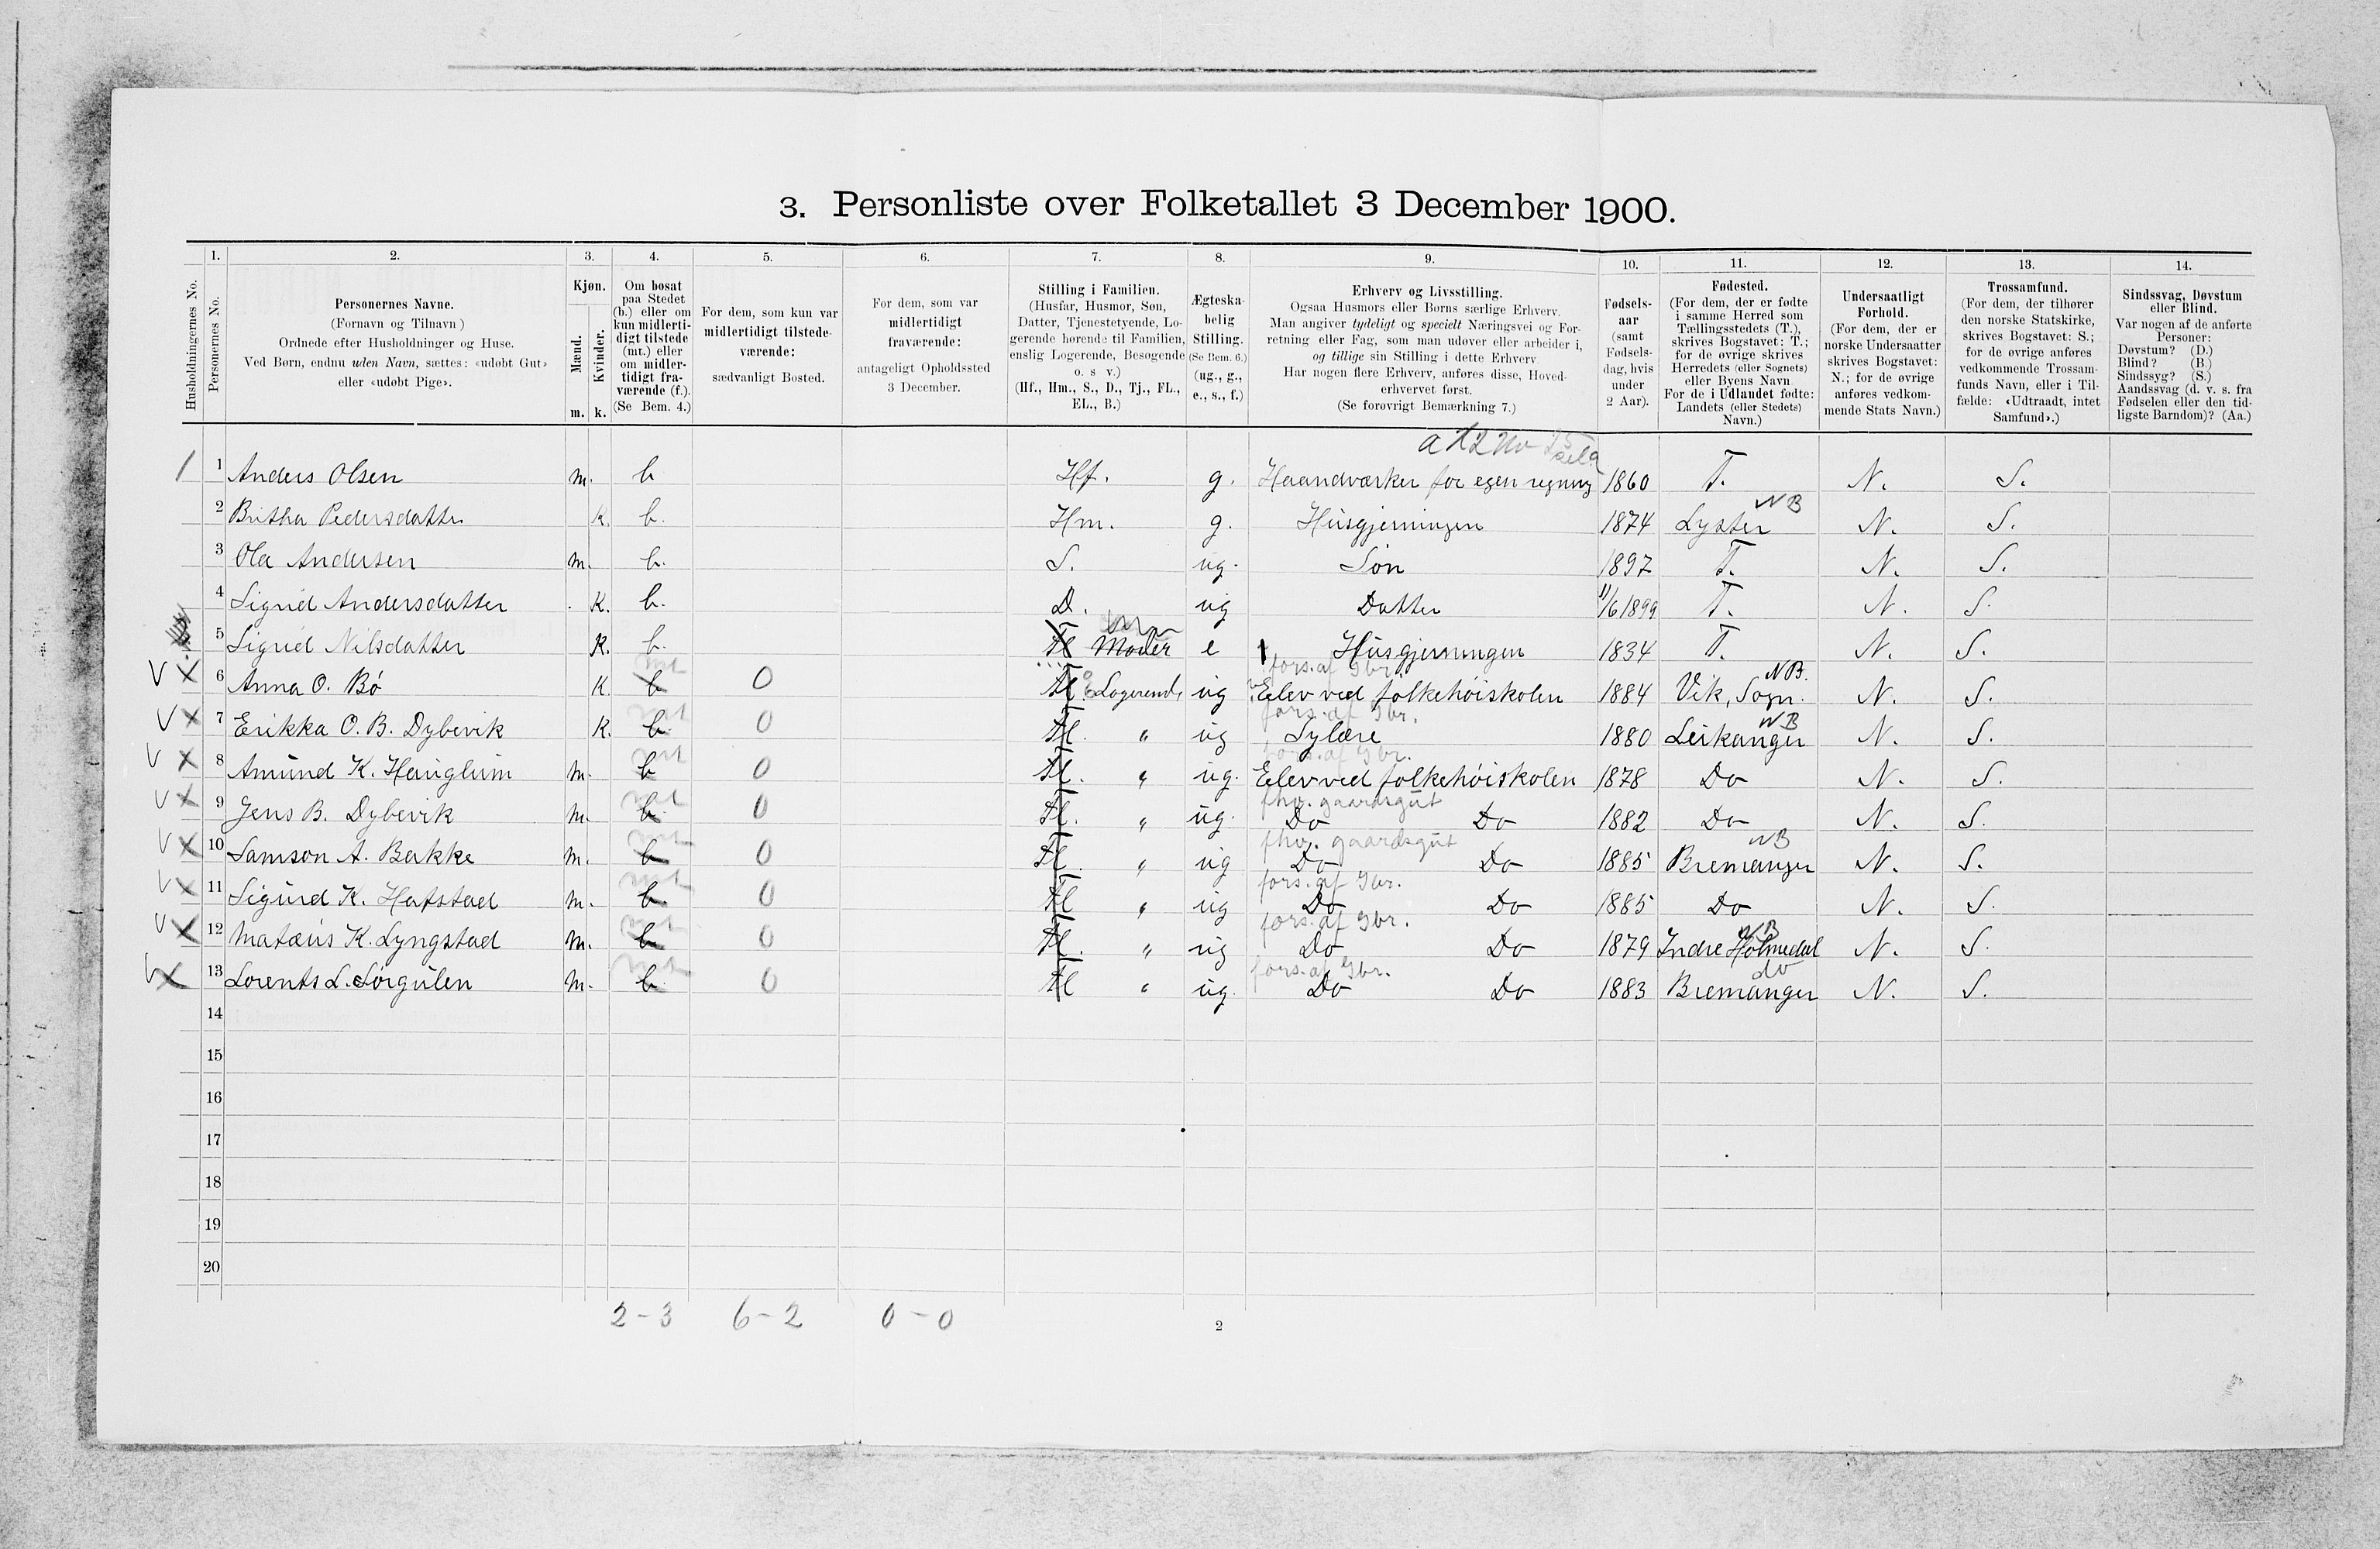 3. Personliste over Folketallet 3 December 1900.
1. 2. 3. 4. 5. 6. 7. 8. 9. 10. 11. 12. 13. 14.
Husholdningernes No.
Personernes No.
Personernes Navne.
(Fornavn og Tilnavn)
Ordnede efter Husholdninger og Huse.
Ved Børn, endnu uden Navn, sættes: «udøbt Gut»
eller «udøbt Pige».
Kjøn.
Mænd.
Kvinder.
m. k.
Om bosat
paa Stedet
(b.) eller om
kun midlerti-
digt tilstede
(mt.) eller
om midler-
tidigt fra-
værende (f.).
(Se Bem. 4.)
For dem, som kun var
midlertidigt tilstede-
værende:
sædvanligt Bosted.
For dem, som var
midlertidigt
fraværende:
antageligt Opholdssted
3 December.
Stilling i Familien.
(Husfar, Husmor, Søn,
Datter, Tjenestetyende, Lo-
gerende hørende til Familien,
enslig Logerende, Besøgende
o. s v.)
(Hf., Hm., S., D., Tj., FL.,
EL., B.)
Ægteska-
belig
Stilling.
(Se Bem. 6.)
(ug., g.,
e., s., f.)
Erhverv og Livsstilling.
Ogsaa Husmors eller Børns særlige Erhverv.
Man angiver tydeligt og specielt Næringsvei og For-
retning eller Fag, som man udøver eller arbeider i,
og tillige sin Stilling i dette Erhverv.
Har nogen flere Erhverv, anføres disse, Hoved-
erhvervet først.
(Se forøvrigt Bemærkning 7.)
Fødsels-
aar
(samt
Fødsels-
dag, hvis
under
2 Aar).
Fødested.
(For dem, der er fødte
i samme Herred som
Tællingsstedets (T.),
skrives Bogstavet: T.;
for de øvrige skrives
Herredets (eller Sognets)
eller Byens Navn.
For de i Udlandet fødte:
Landets (eller Stedets)
Navn.)
Undersaatligt
Forhold.
(For dem, der er
norske Undersaatter
skrives Bogstavet:
N.; for de øvrige
anføres vedkom-
mende Stats Navn.)
Trossamfund.
(For dem, der tilhører
den norske Statskirke,
skrives Bogstavet: S.;
for de øvrige anføres
vedkommende Trossam-
funds Navn, eller i Til-
fælde: «Udtraadt, intet
Samfund».)
Sindssvag, Døvstum
eller Blind.
Var nogen af de anførte
Personer:
Døvstum? (D.)
Blind? (B.)
Sindssyg? (S.)
Aandssvag (d. v. s. fra
Fødselen eller den tid-
ligste Barndom)? (Aa.)
1 1 Anders Olsen m. b Hf. g. Haandværker for egen regning 1860 T. N. S.
NB
2 Britha Pedersdatter K. b. Hm. g. Husgjerningen 1874 Lyster N. S.
3 Ola Andersen m. b. S. ug. Søn 1897 T. N. S.
4 Sigrid Andersdatter K. b. D. ug Datter 11/6 1899 T. N. S.
5 Sigrid Nilsdatter K. b. Fl Moder e Husgjerningen 1834 T. N. S.
mt fors. af Gbr. NB.
V X 6 Anna O. Bø K. b 0 Fl. Logerende ug Elev ved folkehøiskolen 1884 Vik, Sogn. N. S.
mt fors. af Gbr. NB
V X 7 Erikka O. B. Dybevik K. b. 0 Fl. " ug Sylære 1880 Leikanger N. S.
mt fors. af Gbr.
V X 8 Amund K. Hauglum m. b 0 Fl. " ug. Elev ved folkehøiskolen 1878 Do N. S.
mt fhv. gaardsgut
V X 9 Jens B. Dybevik m. b. 0 Fl. " ug. Do Do 1882 Do N. S.
mt fhv. gaardsgut NB
V X 10 Samson A. Bakke m. b 0 Fl. " ug Do Do 1885 Bremanger N. S.
mt fors. af Gbr.
V X 11 Sigurd K. Hafstad m. b. 0 Fl " ug Do Do 1885 Do N. S.
mt fors. af Gbr. NB
V X 12 Matæus K. Lyngstad m. b 0 Fl. " ug Do Do 1879 Indre Holmedal N. S.
mt fors. af Gbr. do
V X 13 Lorents L. Sørgulen m. b. 0 Fl " ug. Do Do 1883 Bremanger N. S.
14
15
16
17
18
19
20
2-3 6-2 0-0
2